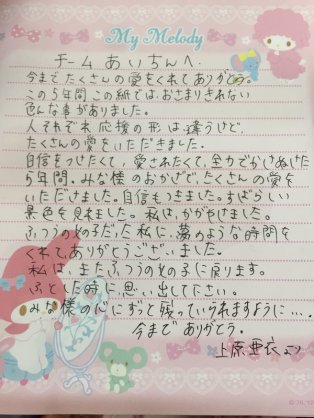 My Melody
チームあいちんへ
今までたくさんの愛をくれてありがとう。
この5年間この紙では、おさまりきれない
色んな事がありました。
人それぞれ応援の形は違うけど、
たくさんの愛をいただきました。
自信をつけたくて、愛されたくて、全力でかけぬけた
5年間。みな様のおかげで、たくさんの愛を
いただけました。自信もつきました。すばらしい
景色を見れました。私は、かがやけました。
ふつうの女の子だった私に、夢のような時間を
くれて、ありがとうございました。
私は、またふつうの女の子に戻ります。
ふとした時に、思い出して下さい。
みな様の心にずっと残っていられますように…。
今までありがとう。
上原亜衣より